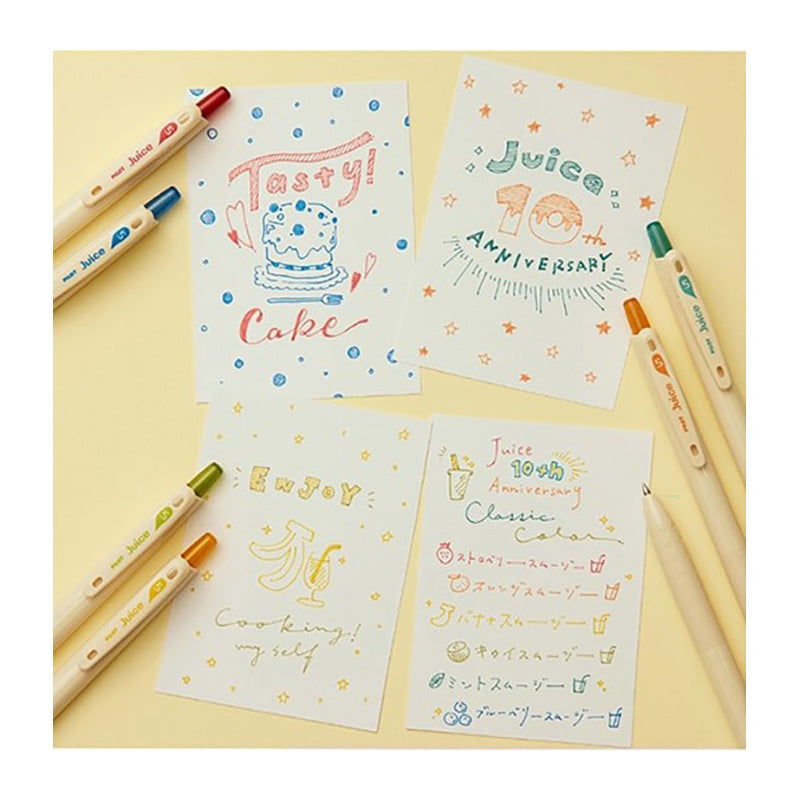 Tasty!
Cake
Juice
10th
ANNIVERSARY
ENJOY
Cooking!
my self
Juice
10th
Anniversary
Classic
Color
ストロベリースムージー
オレンジスムージー
バナナスムージー
キウイスムージー
ミントスムージー
ブルーベリースムージー
PILOT Juice 5
PILOT Juice 5
PILOT Juice 5
PILOT Juice 5
PILOT Juice 5
PILOT Juice 5